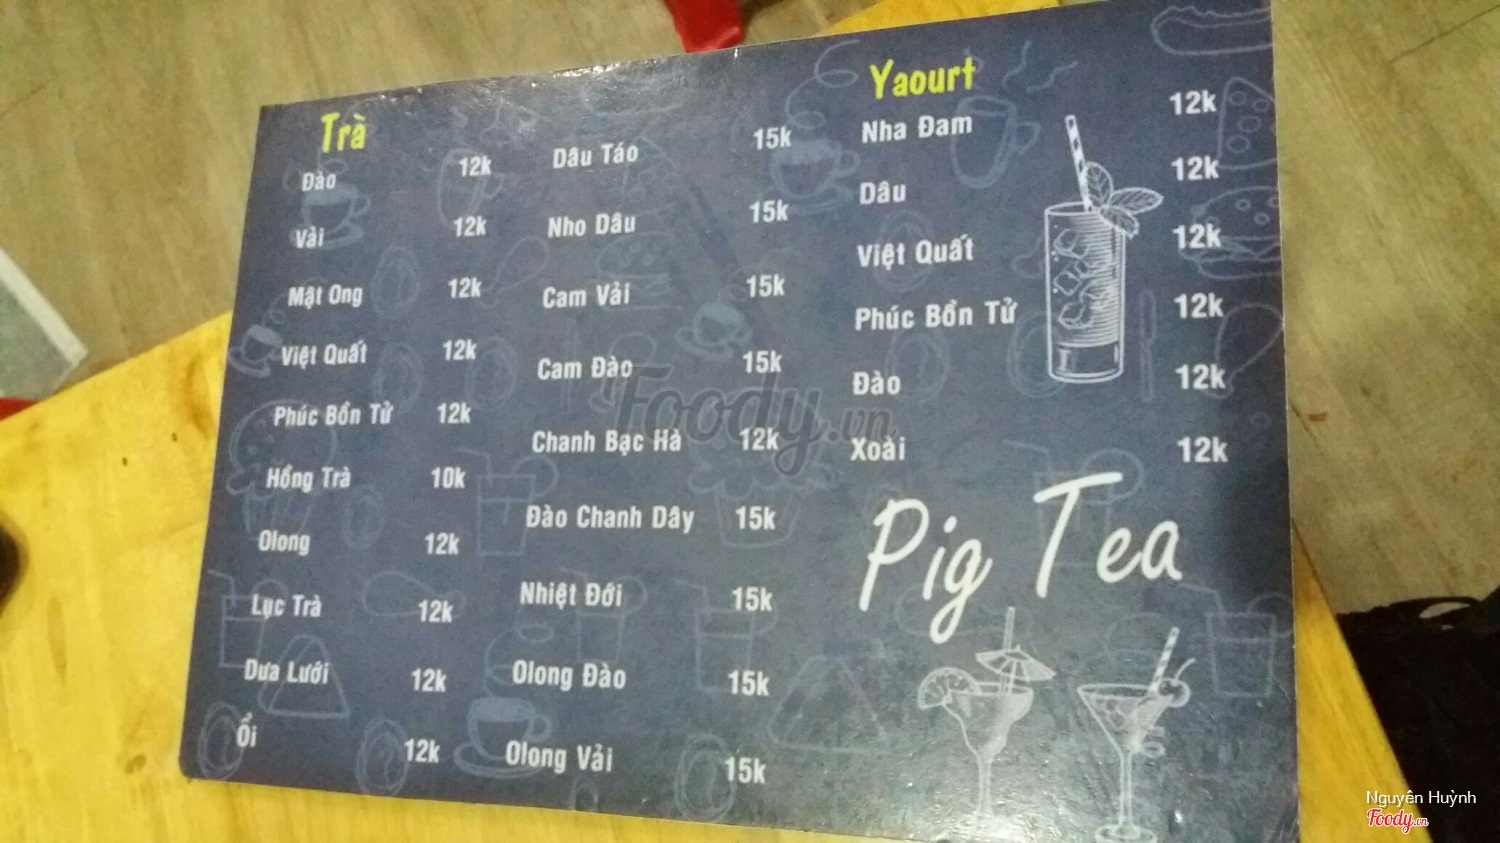 Trà
Đào 12k
Vải 12k
Mật Ong 12k
Việt Quất 12k
Phúc Bồn Tử 12k
Hồng Trà 10k
Olong 12k
Lục Trà 12k
Dưa Lưới 12k
Ổi 12k
Dâu Táo 15k
Nho Dâu 15k
Cam Vải 15k
Cam Đào 15k
Chanh Bạc Hà 12k
Đào Chanh Dây 15k
Nhiệt Đới 15k
Olong Đào 15k
Olong Vải 15k
Yaourt
Nha Đam 12k
Dâu 12k
Việt Quất 12k
Phúc Bồn Tử 12k
Đào 12k
Xoài 12k
Pig Tea
Foody.vn
Nguyên Huỳnh
Foody.vn